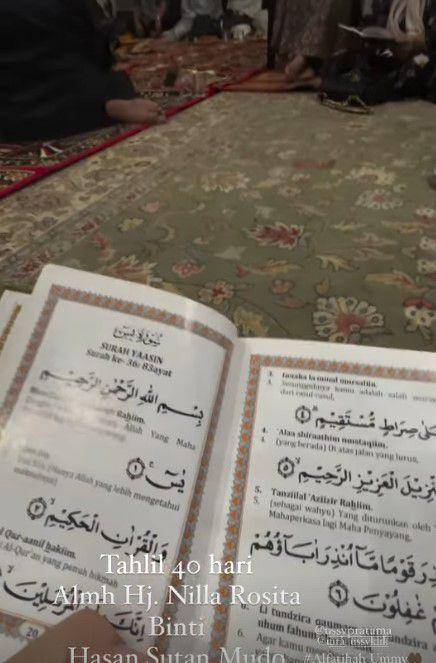 سورة يس
SURAH YAASIN
Surah ke- 36: 83ayat
بِسْمِ اللّٰهِ الرَّحْمٰنِ الرَّحِيْمِ
Allah Yang Maha
يٰسۤ ۚ ١
(Hanya Allah yang lebih mengetahui
وَالْقُرْاٰنِ الْحَكِيْمِ ٢
Qur-aanil hakiim.
Al-Qur'an yang penuh hikmah
اِنَّكَ لَمِنَ الْمُرْسَلِيْنَ
20
3. Innaka la minal mursaliin.
3. Sesungguhnya kamu adalah salah seorang
dari rasul-rasul,
عَلٰى صِرَاطٍ مُّسْتَقِيْمٍ ٤
4. 'Alaa shiraathim mustaqiim.
4. (yang berada) Di atas jalan yang lurus,
تَنْزِيْلَ الْعَزِيْزِ الرَّحِيْمِ ٥
5. Tanziilal 'Aziizir Rahiim.
5. (sebagai wahyu) Yang diturunkan oleh
Mahaperkasa lagi Maha Penyayang,
لِتُنْذِرَ قَوْمًا مَّآ اُنْذِرَ اٰبَاۤؤُهُمْ
غٰفِلُوْنَ ٦
6. Li tundzira
uhum fahum
6. Agar kamu
Tahlil 40 hari
Almh Hj. Nilla Rosita
Binti
Hasan Sutan Mudo
@ussypratama